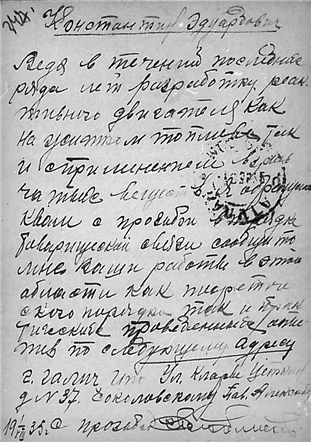 Константин Эдуардович
Ведя в течении последние
ряда лет разработку реак
тивного двигателя как
на жидком топливе так
и с применением взрыв
чатых веществ обращ
к Вам с просьбой в порядке
товарищеской связи сообщить
мне Ваши работы в этой
области как теорети
ского порядка так и прак
тических проведенных опы
по следующему адресу
г. Галич ул. Клары Цеткин
д № 37. Соколовскому Пав.
19 35 г. С